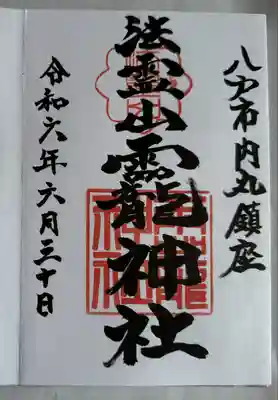 八戸市内丸鎮座
法霊山龗神社
令和六年六月三十日
龗神社